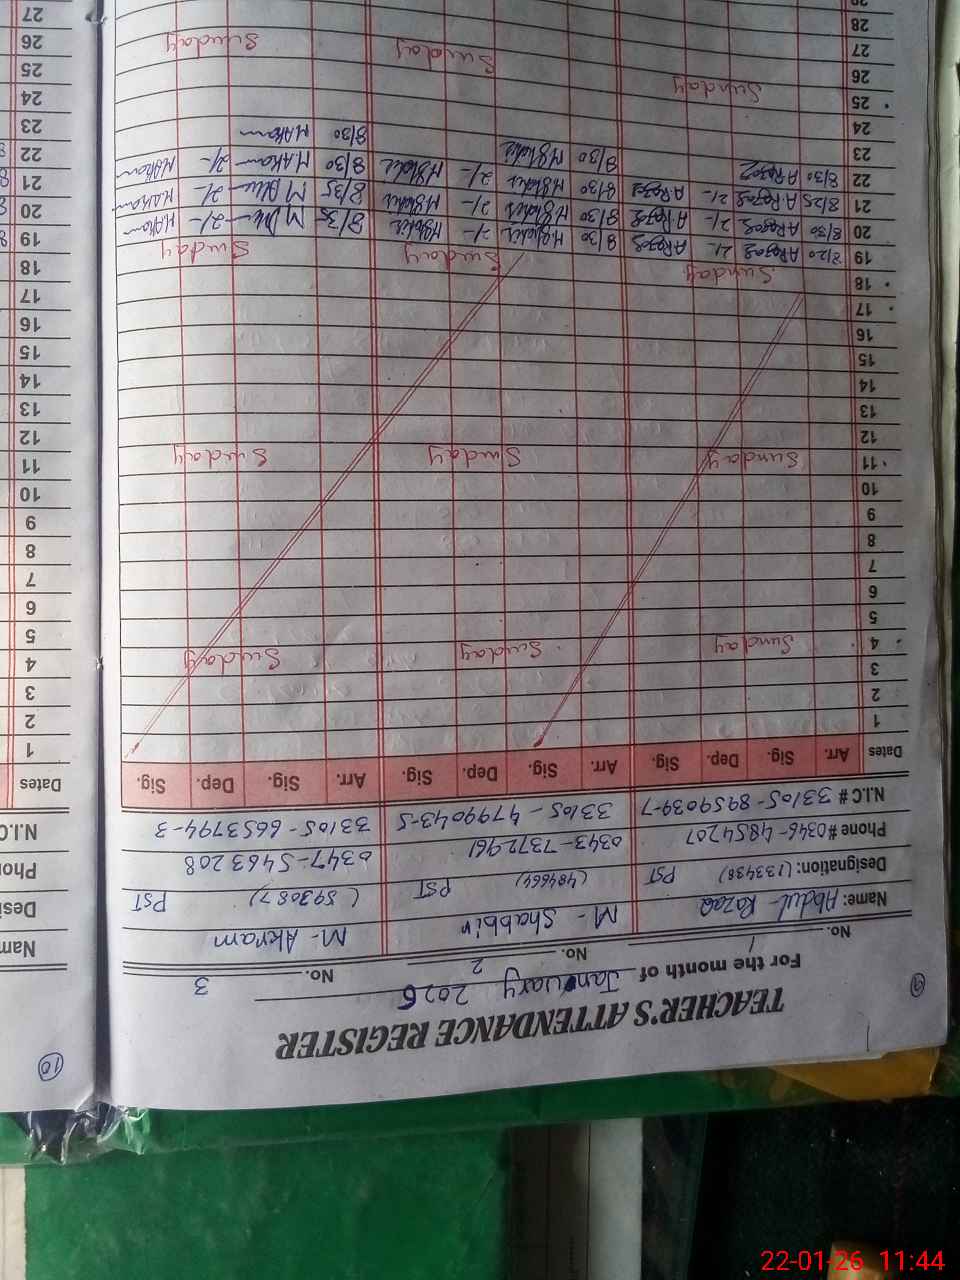 9
TEACHER'S ATTENDANCE REGISTER
For the month of January 2026
No. 1 No. 2 No. 3
Name: Abdul Razaq M- Shabbir M- Akram
Designation: (133438) PST (484664) PST (593087) PST
Phone # 0346-4854207 0343-7372961 0347-5463208
N.I.C # 33105-8959039-7 33105-4799043-5 33105-6653794-3
Dates Arr. Sig. Dep. Sig. Arr. Sig. Dep. Sig. Arr. Sig. Dep. Sig.
1
2
3
4 Sunday Sunday Sunday
5
6
7
8
9
10
11 Sunday Sunday Sunday
12
13
14
15
16
17
18 Sunday Sunday Sunday
19 8/20 ARazaq 2/- ARazaq 8/30 MShabir 2/- MShabir 8/35 2/- MAkram
20 8/30 ARazaq 2/- ARazaq 8/30 MShabir 2/- MShabir 8/35 2/- MAkram
21 8/25 ARazaq 2/- ARazaq 8/30 MShabir 2/- MShabir 8/30 MAkram 2/- MAkram
22 8/30 ARazaq 8/30 MShabir 8/30 MAkram
23
24
25 Sunday Sunday Sunday
26
27
28
10
Nam
Desi
Phon
N.I.C
Dates
1
2
3
4
5
6
7
8
9
10
11
12
13
14
15
16
17
18
19
20
21
22
23
24
25
26
27
22-01-26 11:44